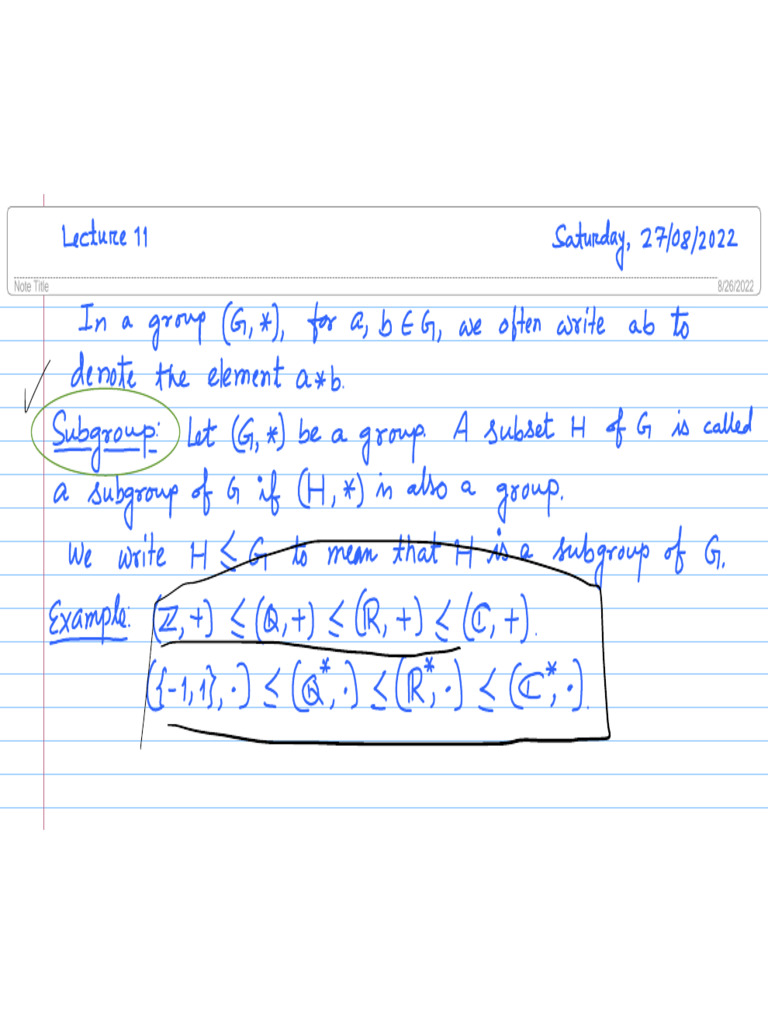 Lecture 11
Saturday, 27/08/2022
Note Title
8/26/2022
In a group (G,*), for a, b ∈ G, we often write ab to
denote the element a*b.
Subgroup: Let (G,*) be a group. A subset H of G is called
a subgroup of G if (H,*) is also a group.
We write H ≤ G to mean that H is a subgroup of G.
Example: (ℤ,+) ≤ (ℚ,+) ≤ (ℝ,+) ≤ (ℂ,+).
({-1,1},·) ≤ (ℚ*,·) ≤ (ℝ*,·) ≤ (ℂ*,·).